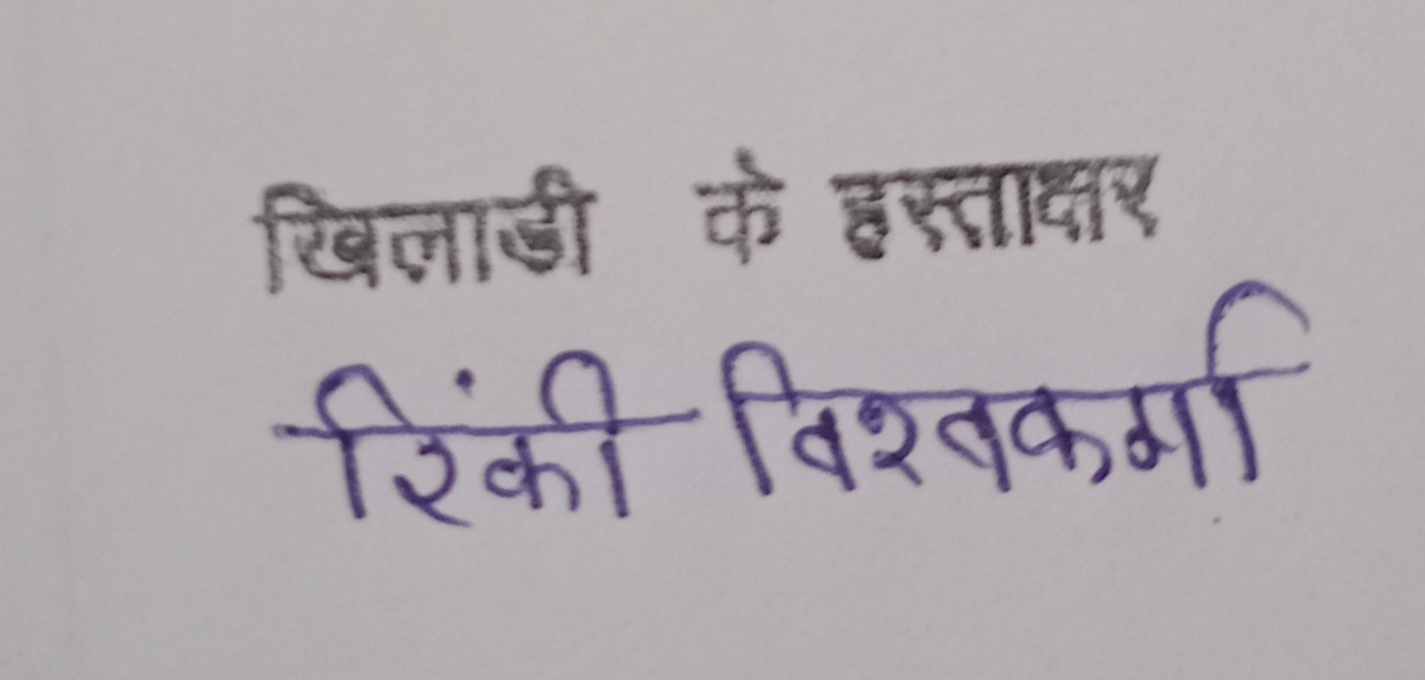 खिलाडी के हस्ताक्षर
रिंकी विश्वकर्मा